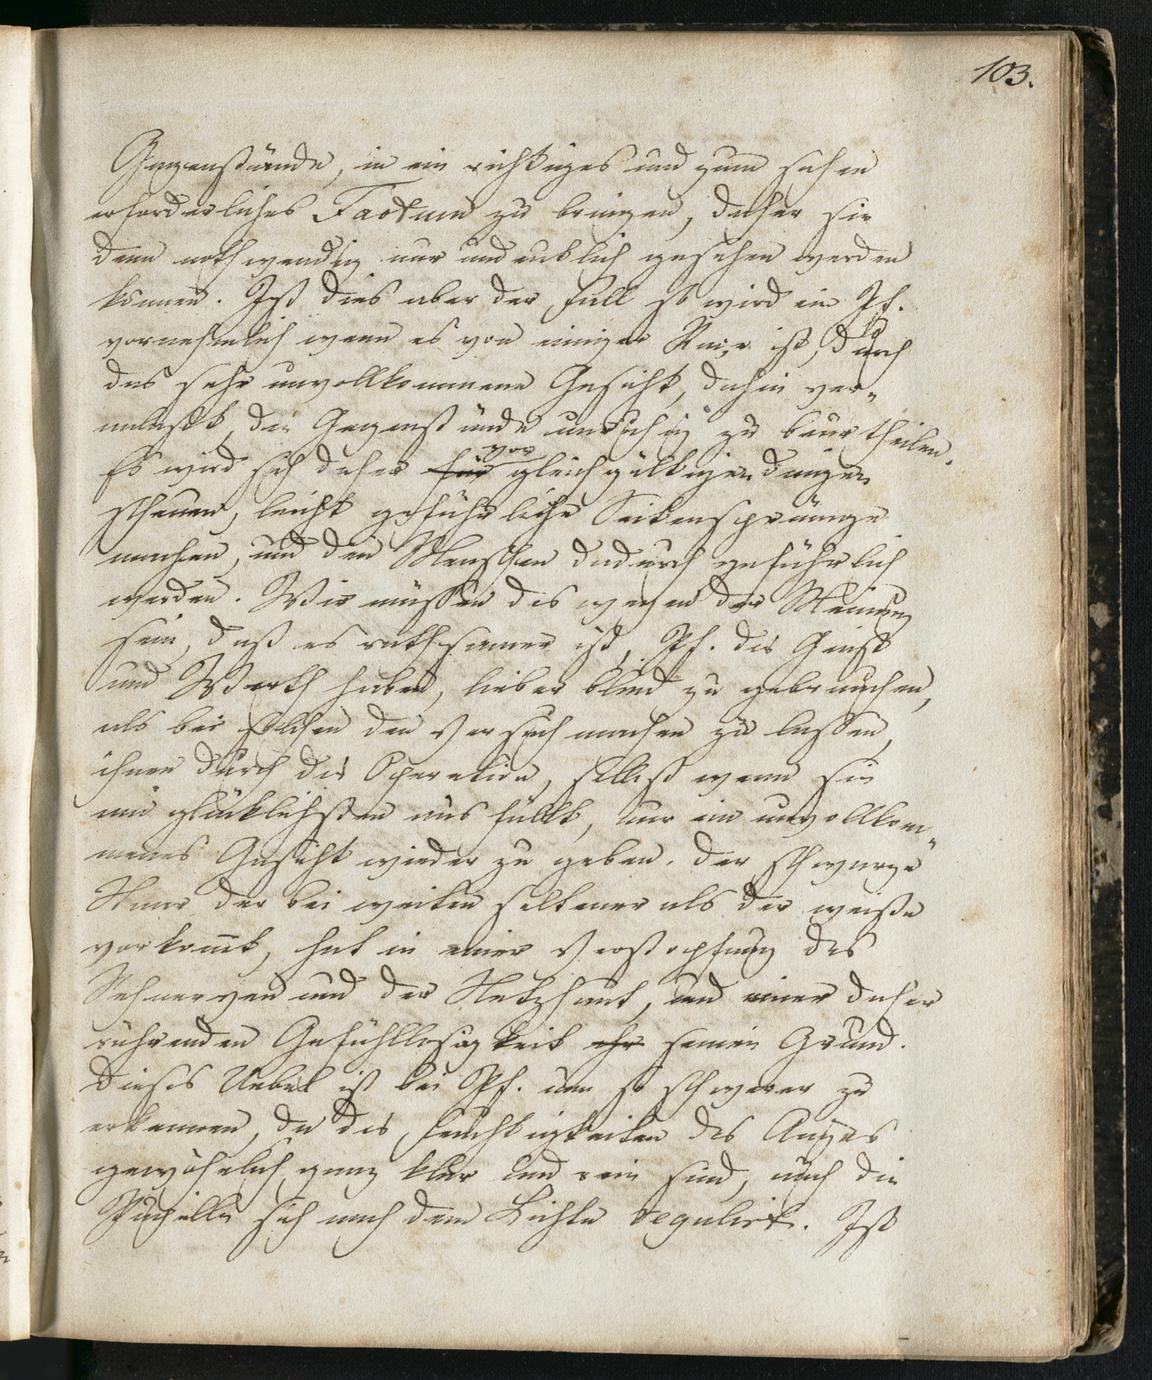 103.
Gegenstände, in ein richtiges und zum sehen
erforderliches Factum zu bringen, daher sie
denn nothwendig nur undeutlich gesehen werden
können. Ist dies aber der Fall so wird ein Pf.
vornehmlich wenn es von einiger ist, durch
das sehr unvollkommene Gesicht, dahin ver-
anlaßt, die Gegenstände unrichtig zu beurtheilen.
Es wird sich daher für vor gleichgültigen Dingen
scheuen, leicht gefährliche Seitensprünge
machen, und den Menschen dadurch gefährlich
werden. Wir müssen deswegen der Meinung
sein, daß es rathsamer ist, Pf. die Geist
und Werth haben, lieber blind zu gebrauchen,
als bei solchen den Versuch machen zu lassen,
ihnen durch die Operation, selbst wenn sie
am glücklichsten ausfällt, nur ein unvollkom-
menes Gesicht wieder zu geben. Der schwarze
Staar der bei weiten seltener als der weiße
vorkommt, hat in einer Verstopfung des
Sehnerven und der Netzhaut, und einer daher
rührenden Gefühllosigkeit ihr seinen Grund.
Dieses Uebel ist bei Pf. um so schwerer zu
erkennen, da die Feuchtigkeiten des Auges
gewöhnlich ganz klar und rein sind, auch die
Pupille sich nach dem Lichte regulirt. Ist